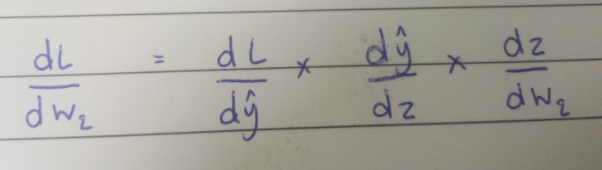 dL/dw₂ = dL/dŷ × dŷ/dz × dz/dw₂